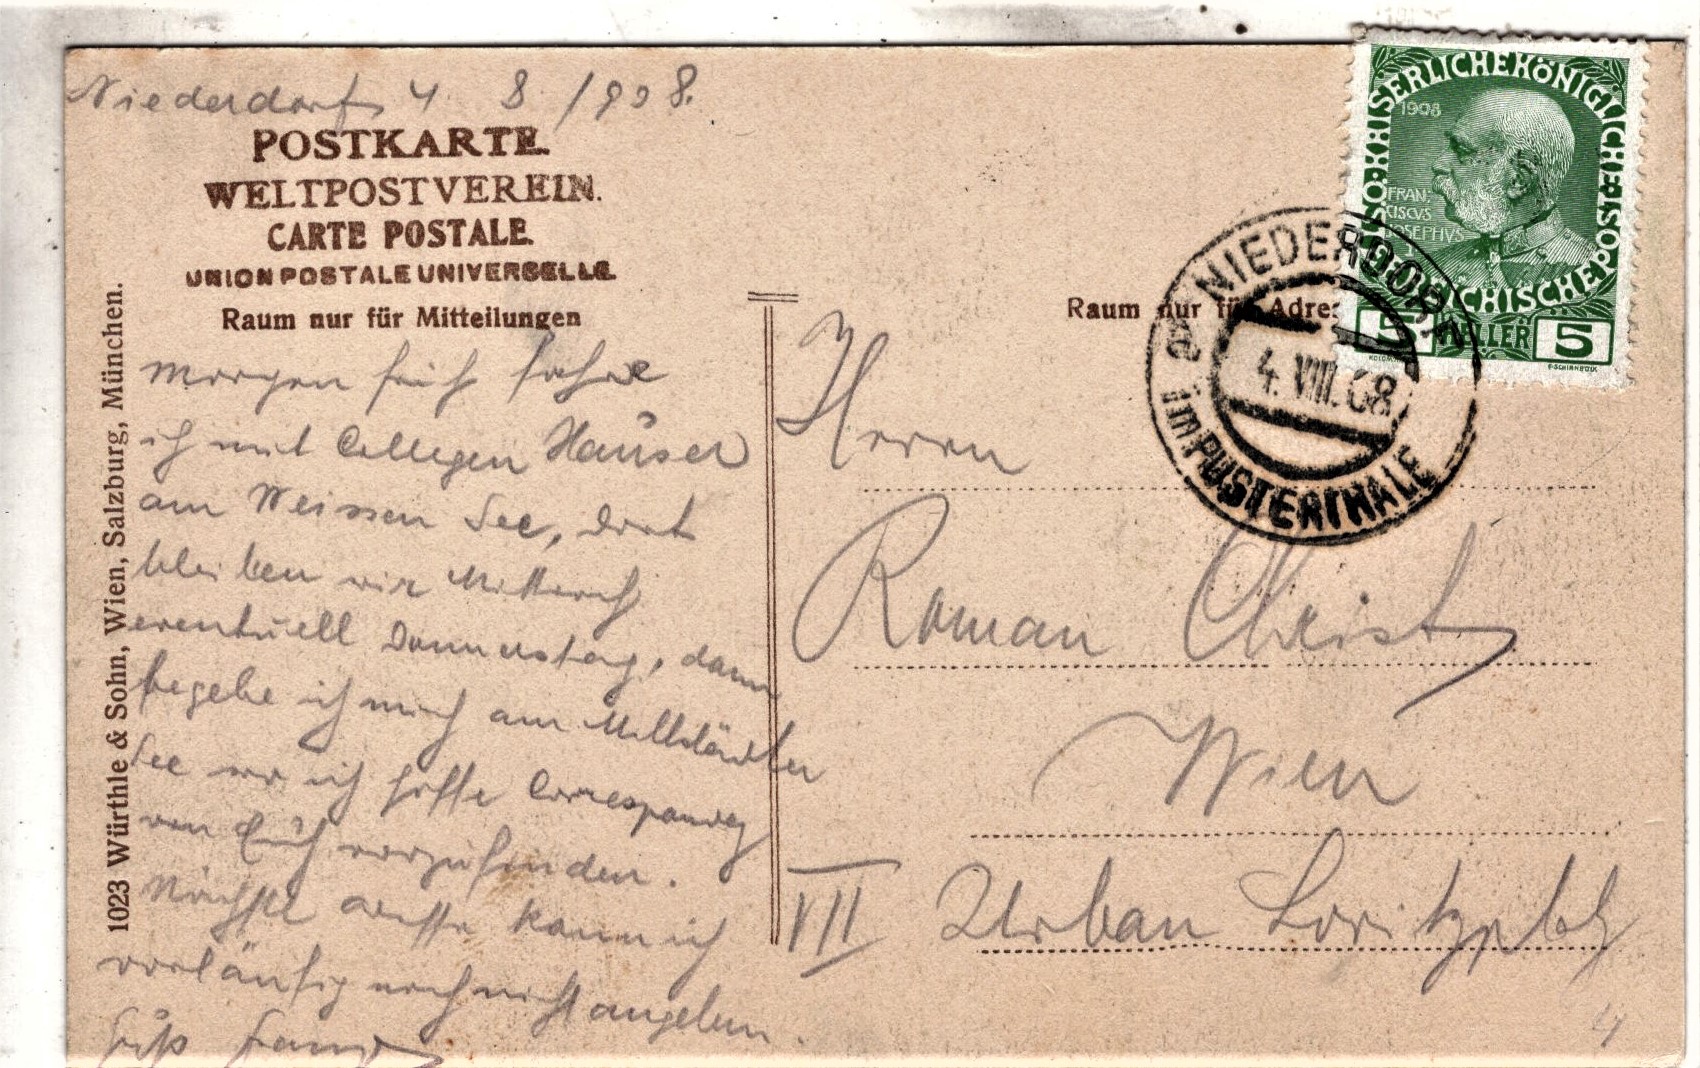 Niederdorf 4. 8. /1908.
POSTKARTE.
WELTPOSTVEREIN.
CARTE POSTALE.
UNION POSTALE UNIVERSELLE.
Raum nur für Mitteilungen
morgen früh fahre
ich mit Collegen Hauser
am Weissen See, dort
bleiben wir Mittwoch
eventuell Donnerstag, dann
begebe ich mich am Millstädter
See wo ich hoffe
von Euch vorzufinden.
Nächste kann ich
vorläufig noch nicht angeben.
Gruß Franz
1023 Würthle & Sohn, Wien, Salzburg, München.
KAISERLICHE KÖNIGLICHE ÖSTERREICHISCHE POST
1908
FRAN,
CISCVS
IOSEPHVS
5 HELLER 5
NIEDERDORF
4. VIII. 08
im PUSTERTHALE
Raum nur für Adres
Herrn
Roman Christ
Wien
VII Urban Loritzplatz
4